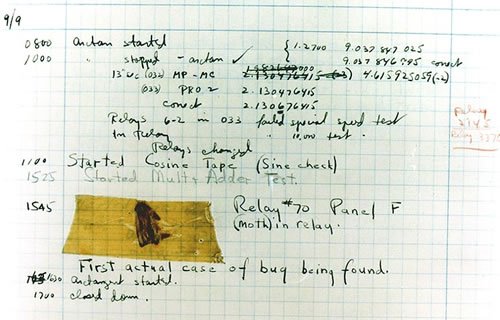 9/9
0800 antan started { 1.2700 9.037 847 025
1000 " stopped - antan ✓ 9.037 846 995 correct
13"uc (032) MP - MC 2.130476415 4.615925059(-2)
(033) PRO 2 2.130476415
correct 2.130676415
Relays 6-2 in 033 failed special speed test
in relay " 10,000 test.
Relay
2145
Relay 3370
Relays changed
1100 Started Cosine Tape (Sine check)
1525 Started Mult + Adder Test.
1545 Relay #70 Panel F
(moth) in relay.
First actual case of bug being found.
1630 antangent started.
1700 closed down.